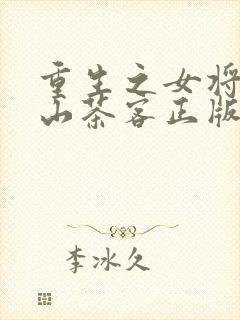 重生之女将
山茶客正版
李冰久